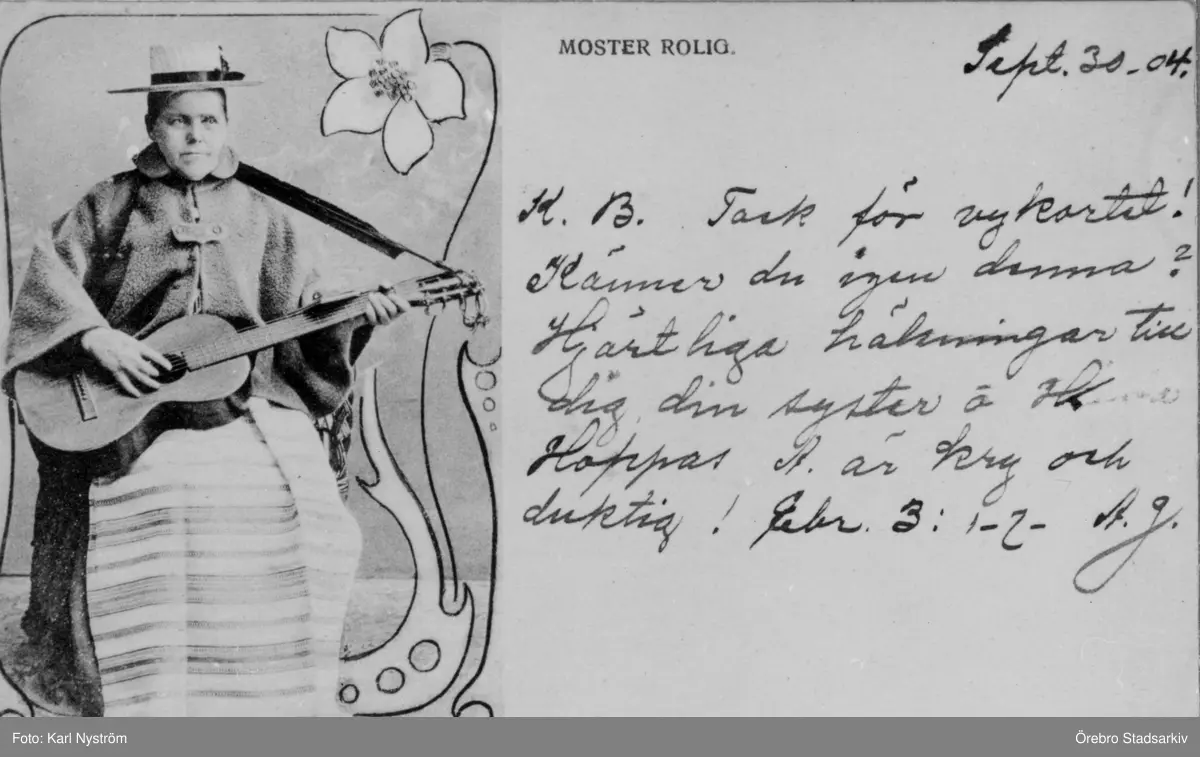 MOSTER ROLIG.
Sept. 30-04.
K. B. Tack för vykortet!
Känner du igen denna?
Hjärtliga hälsningar till
dig, din syster o
Hoppas A. är kry och
duktig! Febr. 3: 1-2- A. J.
Foto: Karl Nyström
Örebro Stadsarkiv